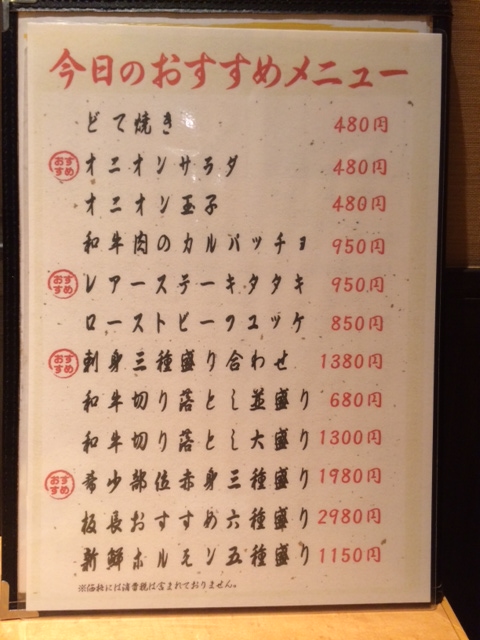 今日のおすすめメニュー
どて焼き 480円
おすすめ オニオンサラダ 480円
オニオン玉子 480円
和牛肉のカルパッチョ 950円
おすすめ レアーステーキタタキ 950円
ローストビーフユッケ 850円
おすすめ 刺身三種盛り合わせ 1380円
和牛切り落とし並盛り 680円
和牛切り落とし大盛り 1300円
おすすめ 希少部位赤身三種盛り 1980円
板長おすすめ六種盛り 2980円
新鮮ホルモン五種盛り 1150円
※価格には消費税は含まれておりません。